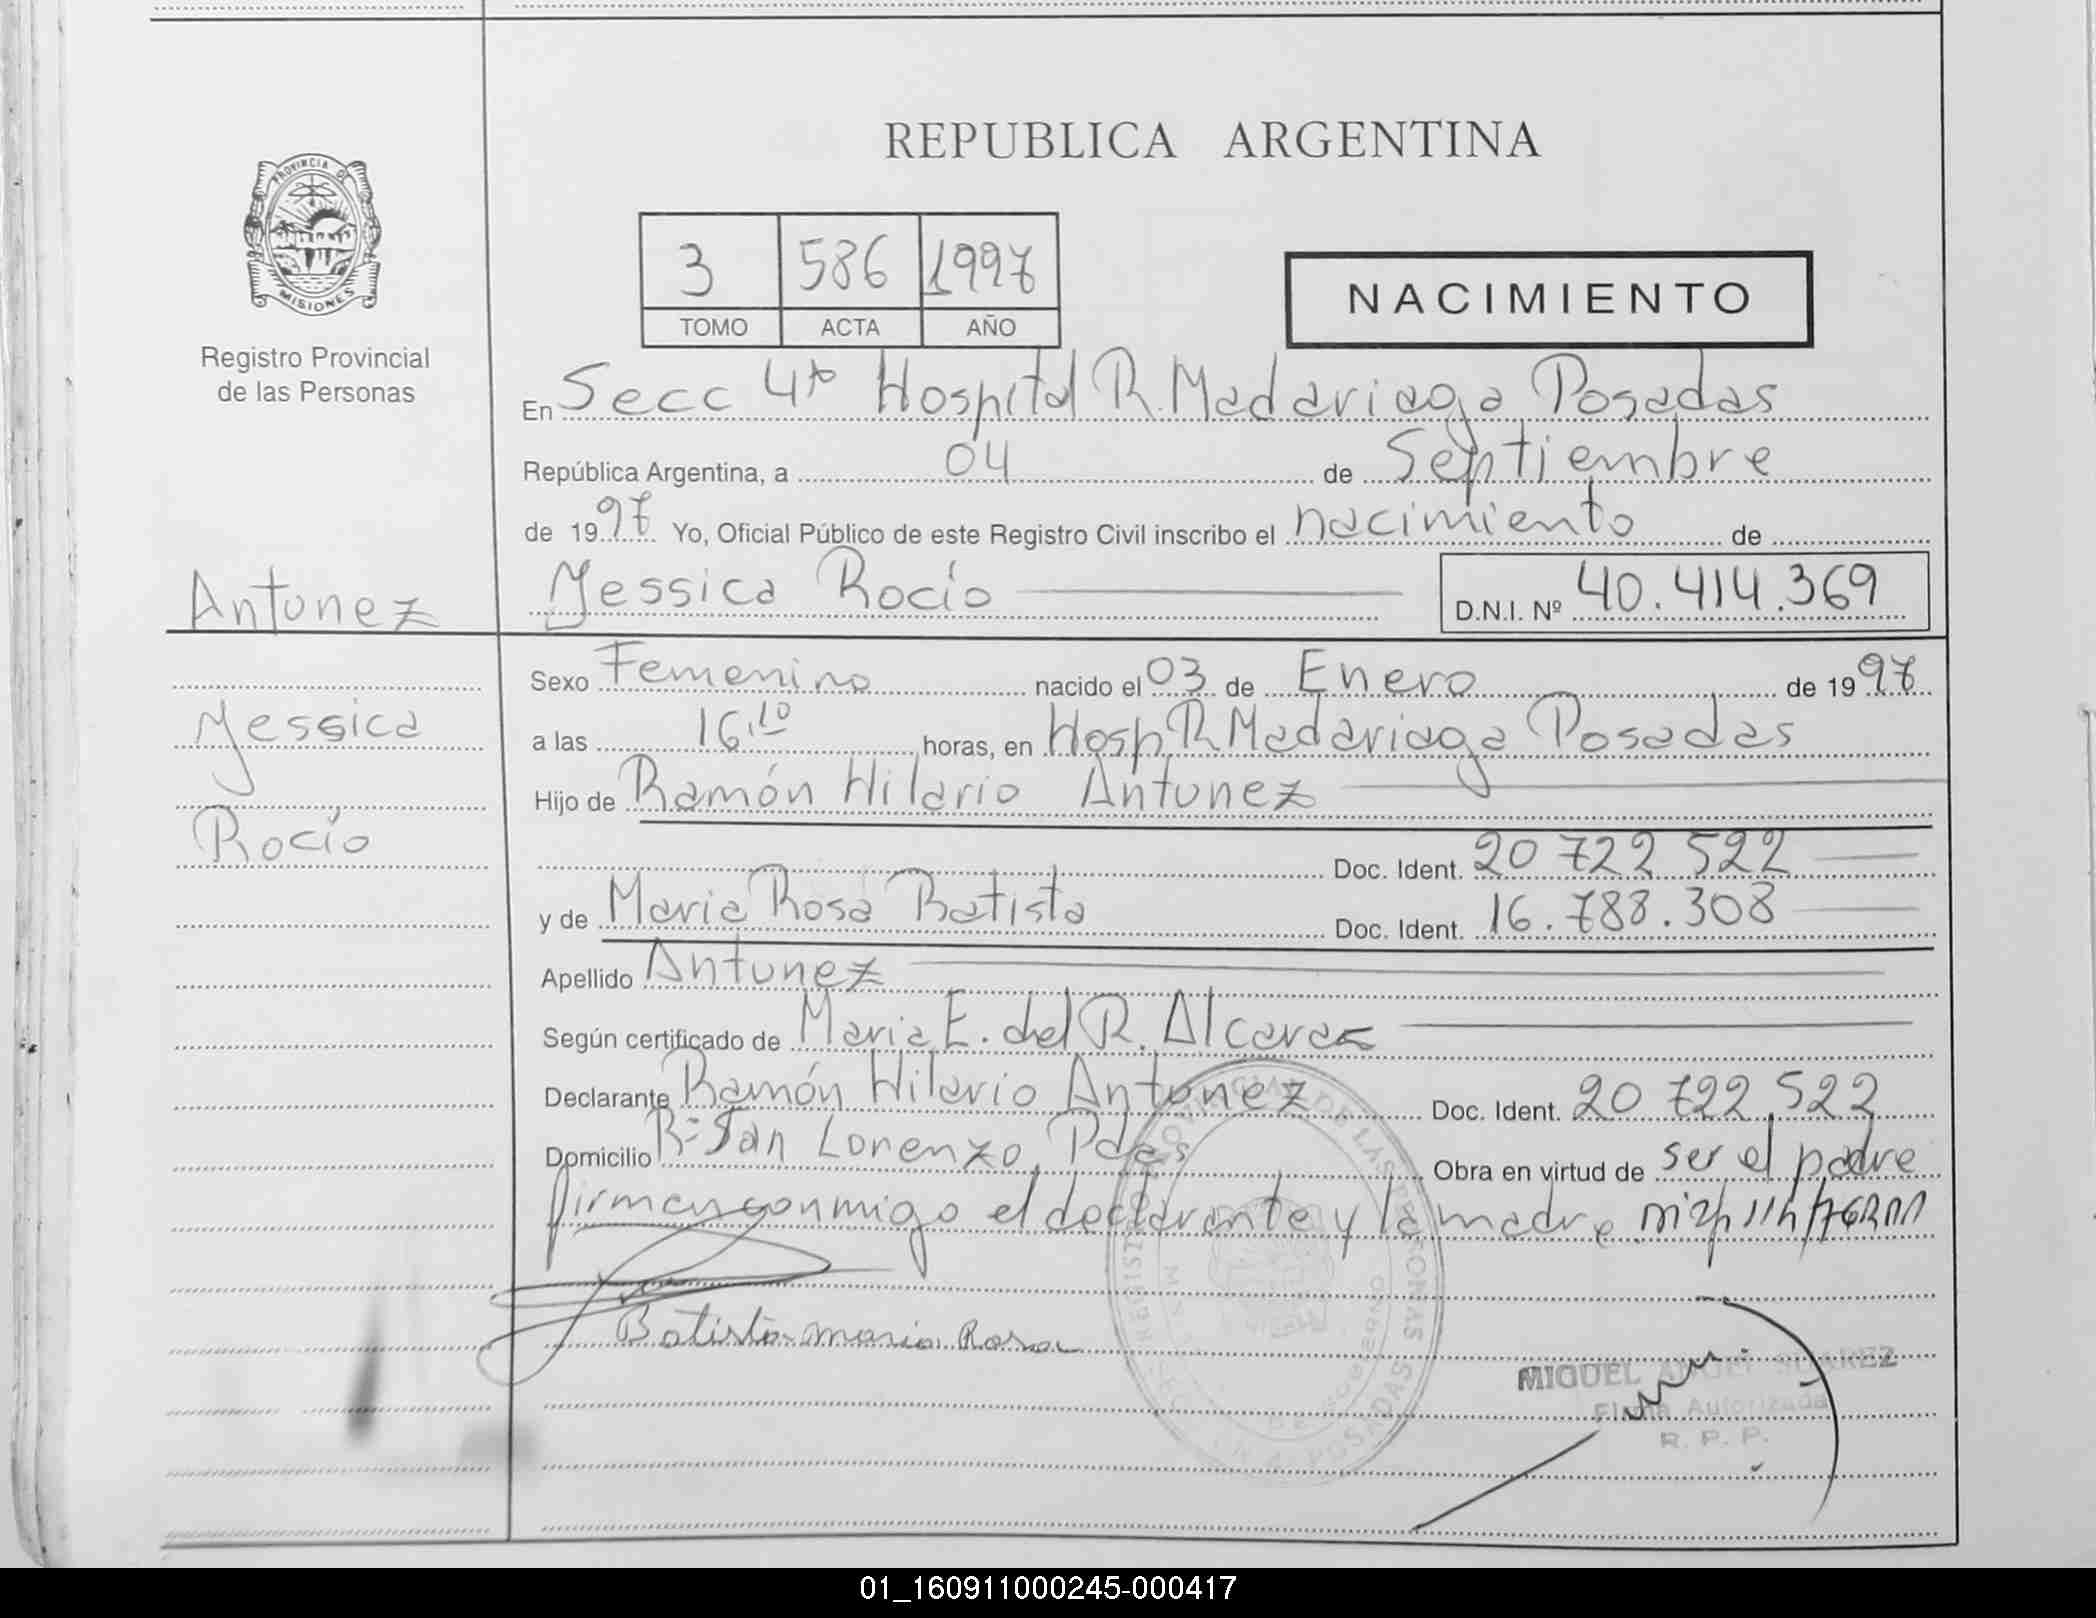 REPUBLICA ARGENTINA
PROVINCIA DE
MISIONES
Registro Provincial
de las Personas
3 586 1997
TOMO ACTA AÑO
NACIMIENTO
En Secc 4ta Hospital R. Madariaga Posadas
República Argentina, a 04 de Septiembre
de 1997 Yo, Oficial Público de este Registro Civil inscribo el nacimiento de
Antunez
Yessica Rocío
D.N.I. Nº 40.414.369
Sexo Femenino nacido el 03 de Enero de 1997
Yessica
a las 16,10 horas, en Hosp R Madariaga Posadas
Hijo de Ramón Hilario Antunez
Rocío
Doc. Ident. 20 722 522
y de Maria Rosa Batista Doc. Ident. 16.788.308
Apellido Antunez
Según certificado de Maria E. del R. Alcaraz
Declarante Ramón Hilario Antunez Doc. Ident. 20 722.522
Domicilio Bº San Lorenzo, Pdas Obra en virtud de ser el padre
firman conmigo el declarante y la madre
Batista Maria Rosa
REGISTRO PROVINCIAL DE LAS PERSONAS
POSADAS
MIGUEL ANGEL SUAREZ
Firma Autorizada
R. P. P.
01_160911000245-000417